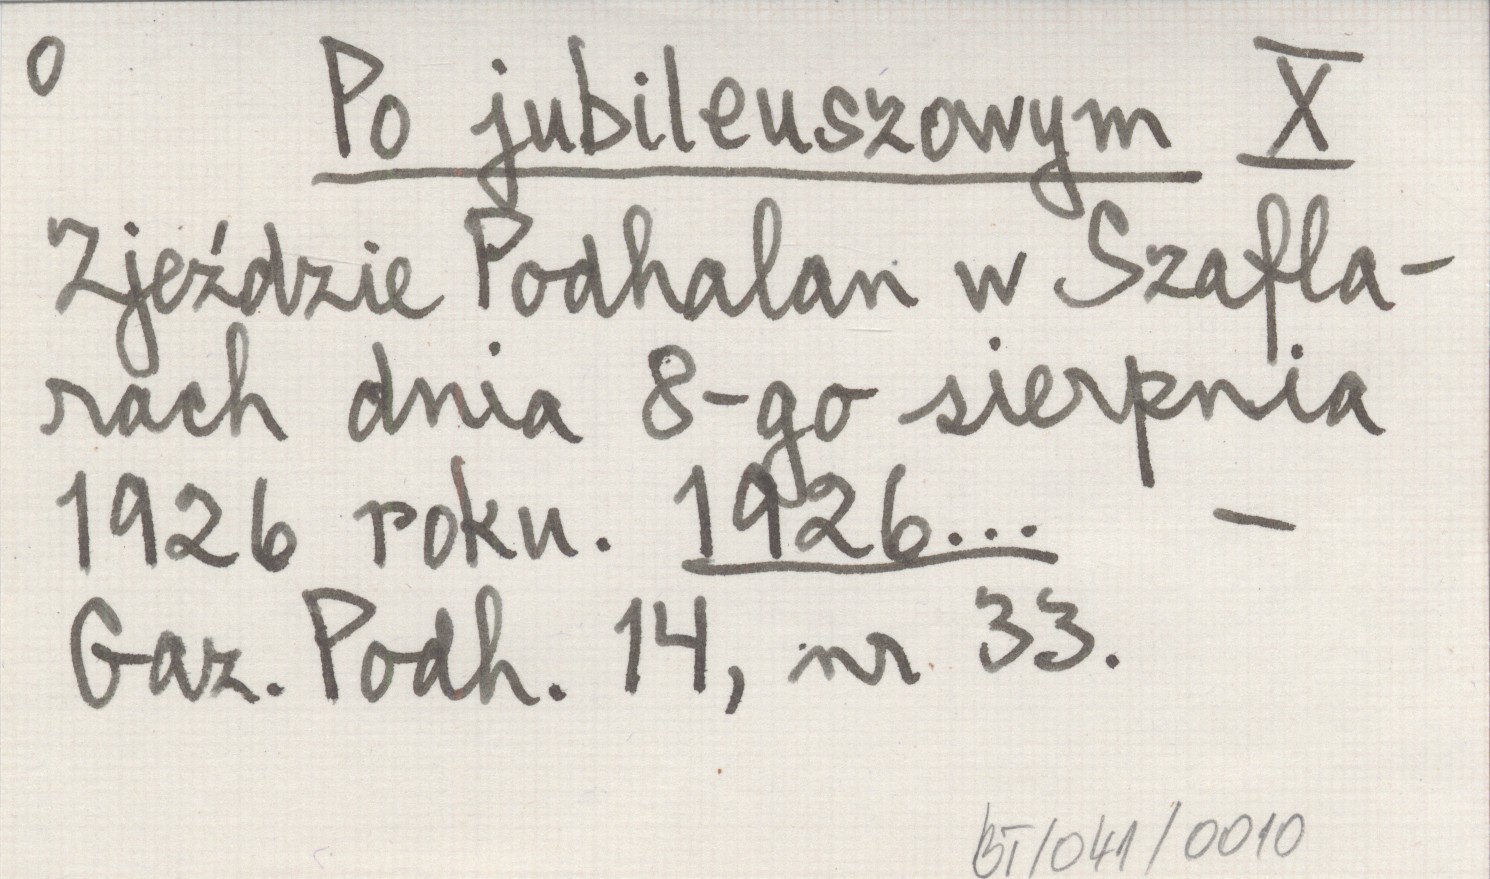 o Po jubileuszowym X
Zjeździe Podhalan w Szafla-
rach dnia 8-go sierpnia
1926 roku. 1926... -
Gaz. Podh. 14, nr 33.
BT/041/0010